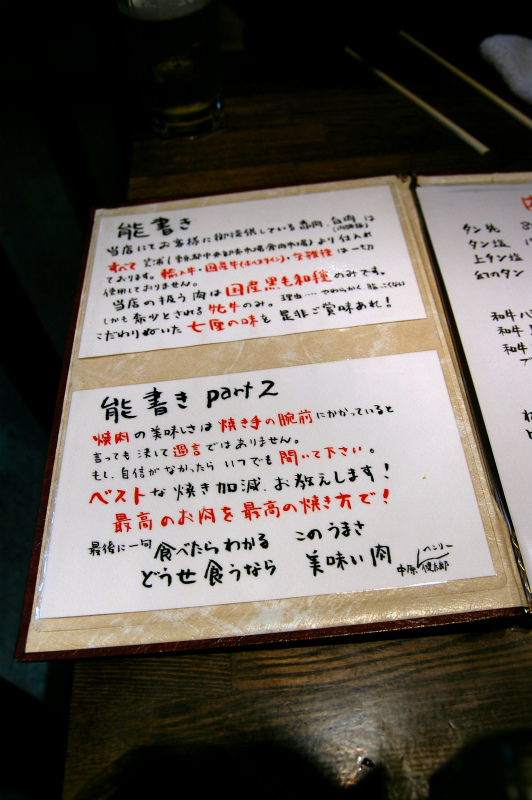 能書き
当店にてお客様に御提供している赤肉、白肉(内臓類)は
すべて芝浦(東京都中央卸売市場食肉市場)より仕入れ
ております。輸入牛・国産牛(ホルスタイン)・交雑種は一切
使用しておりません。
当店の扱う肉は国産黒毛和種のみです。
しかも希少とされる牝牛のみ。理由‥‥やわらかく脂こくない
こだわりぬいた七厘の味を是非ご賞味あれ!
能書き part2
焼肉の美味しさは焼き手の腕前にかかっていると
言っても決して過言ではありません。
もし、自信がなかったらいつでも聞いて下さい。
ベストな焼き加減、お教えします!
最高のお肉を最高の焼き方で!
最後に一句 食べたらわかる このうまさ
どうせ食うなら 美味い肉
ヘンリー
中原健太郎
タン先
タン塩
上タン塩
幻のタン
和牛
和牛
和牛